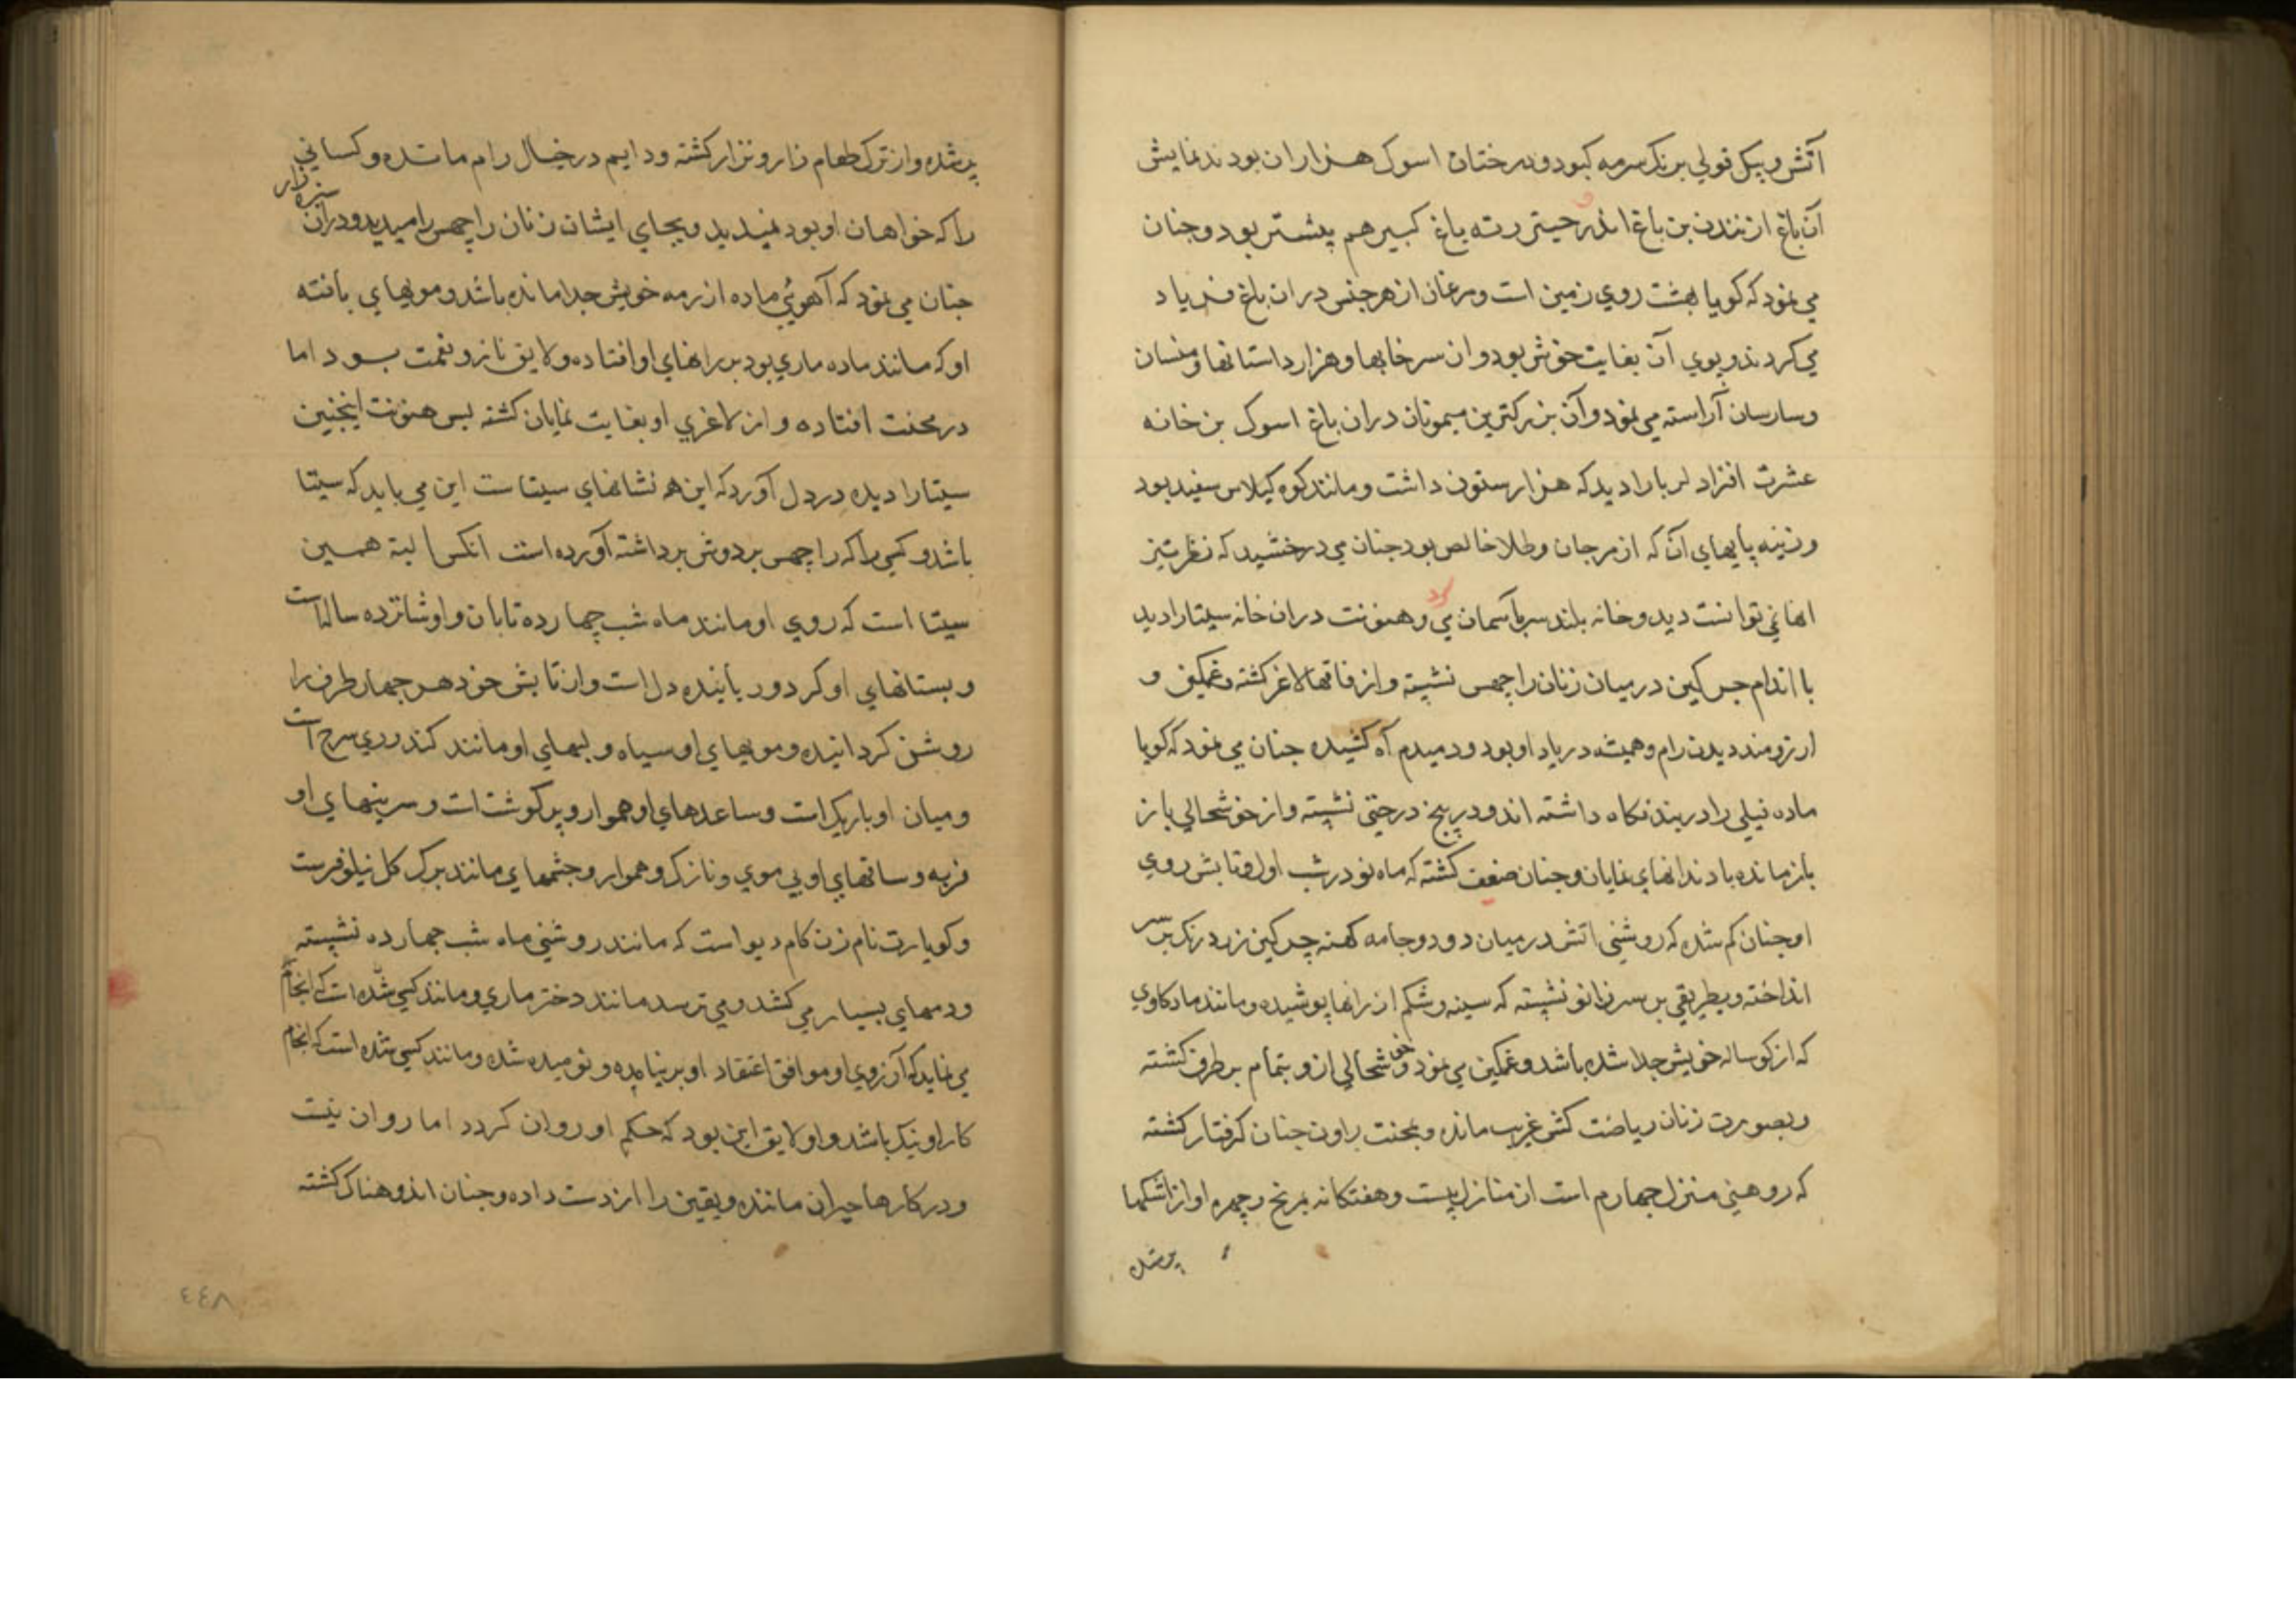 آتش و بیکل قولی برنک سرمه کبود و درختان اسوک هزاران بودند نمایش
آن باغ از نندن بن باغ اندر و چیتر رته باغ کبیر هم پیشتر بود و جنان
می نمود که کویا بهشت روی زمین است و مرغان از هر جنس دران باغ فریاد
می کردند و بوی آن بغایت خوش بود و ان سرخابها و هزار داستانها و هنسان
و سارسان آراسته می نمود و آن بزرکترین میمونان دران باغ اسوک بن خانه
عشرت افزاد لربارا دید که هزار ستون داشت و مانند کوه کیلاس سفید بود
و زینه پایهای آن که از مرجان و طلا خالص بود جنان می درخشید که نظر تیز
انها نمی توانست دید و خانه بلند سر بآسمان می کرد و هنونت دران خانه سیتا را دید
با اندام چرکین درمیان زنان راچهس نشسته و از فاقها لاغر کشته و غمکین و
ارزومند دیدن رام و همیشه در یاد او بود و دمبدم آه کشیده جنان می نمود که کویا
ماده فیلی را در بند نکاه داشته اند و در بیخ درختی نشسته و از خوشحالی باز
باز مانده با دندانهای نمایان و جنان ضعیف کشته که ماه نو در شب اول و تابش روی
او جنان کم شده که روشنی اتش درمیان دود و جامه کهنه چرکین زرد رنک بر سر
انداخته و بطریقی بر سر زانو نشسته که سینه و شکم از رانها پوشیده و مانند ماد کاوی
که از کوساله خویش جدا شده باشد و غمکین می نمود و خوشحالی ازو بتمام بر طرف کشته
و بصورت زنان ریاضت کش غریب مانده و بمحنت راون جنان کرفتار کشته
که روهنی منزل چهارم است از منازل بیست و هفتکانه بمریخ و چهره او از اشکها
پر شده
پر شده و از ترک طعام زار و نزار کشته و دایم در خیال رام مانده و کسانی
را که خواهان او بود نمیدید و بجای ایشان زنان راچهس را میدید و دران سبزه زار
جنان می نمود که آهوئی ماده از رمه خویش جدا مانده باشد و مویهای بافته
او که مانند ماده ماری بود بر رانهای او افتاده و لایق ناز و نعمت بود اما
در محنت افتاده و از لاغری او بغایت نمایان کشته پس هنونت اینچنین
سیتا را دیده در دل آورد که این همه نشانهای سیتاست این می باید که سیتا
باشد و کسی را که راچهس بر دوش برداشته آورده است انکس البته همین
سیتا است که روی او مانند ماه شب چهارده تابان و او شانزده ساله است
و پستانهای او کرد و ربایند‌ه دل است و از تابش خود هر چهار طرف را
روشن کردانیده و مویهای او سیاه و لبهای او مانند کندوری سرخ است
و میان او باریک است و ساعدهای او هموار و پر کوشت است و سرینهای او
فربه و ساقهای او بی موی و نازک و هموار و چشمهای مانند برک کل نیلوفرست
و کویا رت نام زن کام دیو است که مانند روشنی ماه شب چهارده نشسته
و دمهای بسیار می کشد و می ترسد مانند دختر ماری و مانند کسی شده است که انجام
می نماید که آرزوی او موافق اعتقاد او بر نیامده و نومید شده و مانند کسی شده است که انجام
کار او نیک باشد و او لایق این بود که حکم او روان کردد اما روان نیست
و در کارها حیران مانده و یقین را از دست داده و جنان اندوهناک کشته
٤٤٨